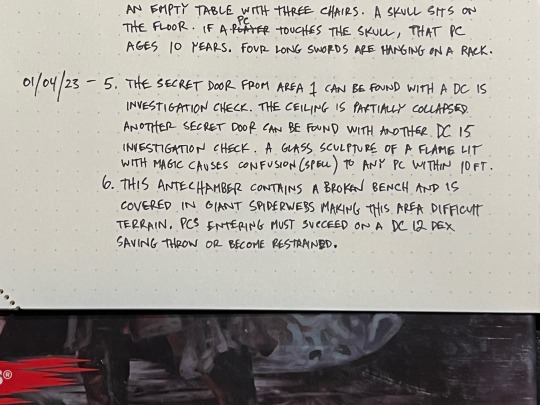 AN EMPTY TABLE WITH THREE CHAIRS. A SKULL SITS ON
THE FLOOR. IF A PLAYER PC TOUCHES THE SKULL, THAT PC
AGES 10 YEARS. FOUR LONG SWORDS ARE HANGING ON A RACK.
01/04/23 - 5. THE SECRET DOOR FROM AREA 1 CAN BE FOUND WITH A DC 15
INVESTIGATION CHECK. THE CEILING IS PARTIALLY COLLAPSED.
ANOTHER SECRET DOOR CAN BE FOUND WITH ANOTHER DC 15
INVESTIGATION CHECK. A GLASS SCULPTURE OF A FLAME LIT
WITH MAGIC CAUSES CONFUSION (SPELL) TO ANY PC WITHIN 10 FT.
6. THIS ANTECHAMBER CONTAINS A BROKEN BENCH AND IS
COVERED IN GIANT SPIDERWEBS MAKING THIS AREA DIFFICULT
TERRAIN. PCS ENTERING MUST SUCCEED ON A DC 12 DEX
SAVING THROW OR BECOME RESTRAINED.
S®